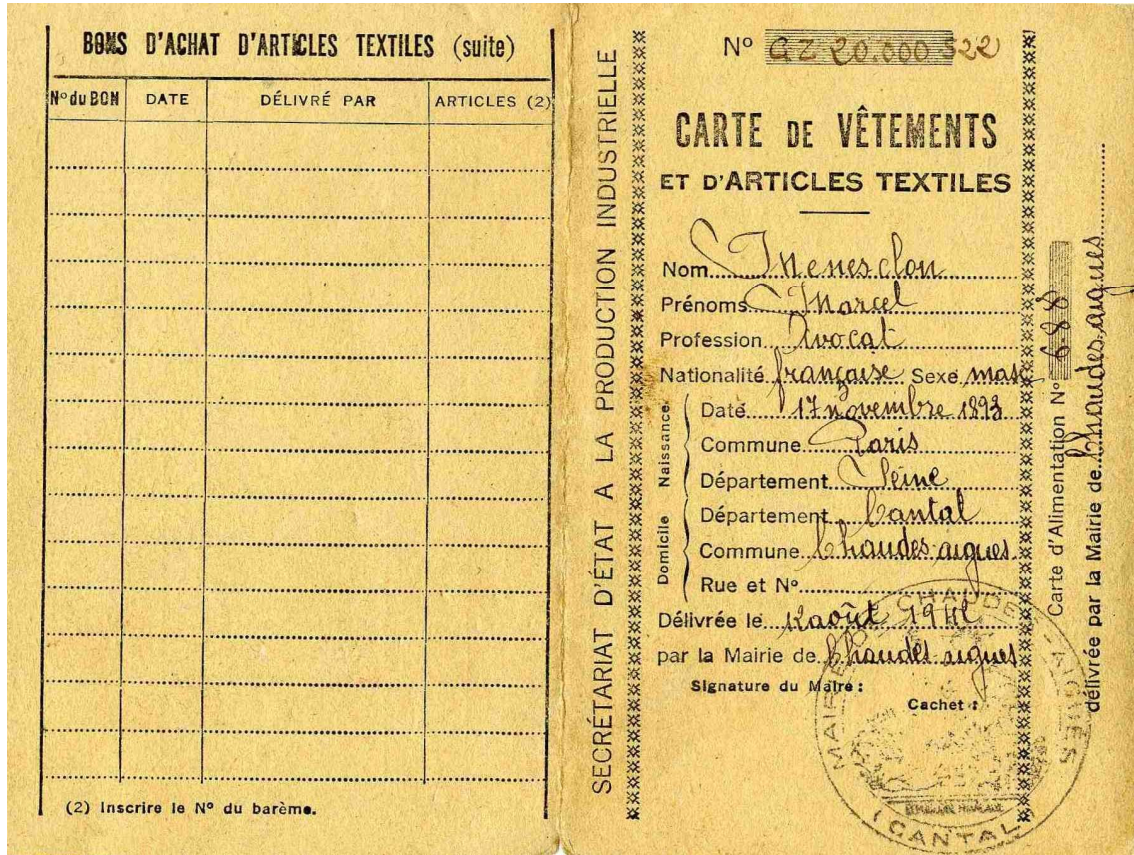 BONS D'ACHAT D'ARTICLES TEXTILES (suite)
N° du BON DATE DÉLIVRÉ PAR ARTICLES (2)
(2) Inscrire le N° du barème.
SECRÉTARIAT D'ÉTAT A LA PRODUCTION INDUSTRIELLE
N° GZ 20.000 522
CARTE DE VÊTEMENTS
ET D'ARTICLES TEXTILES
Nom Menesclou
Prénoms Marcel
Profession Avocat
Nationalité française Sexe masc
Naissance
Date 17 novembre 1893
Commune Paris
Département Seine
Domicile
Département Cantal
Commune Chaudes-aigues
Rue et N°
Délivrée le août
par la Mairie de Chaudes aigues
Signature du Maire :
Cachet :
MAIRIE DE CHAUDES-AIGUES
(CANTAL)
Carte d'Alimentation N° 688
délivrée par la Mairie de Chaudes-aigues